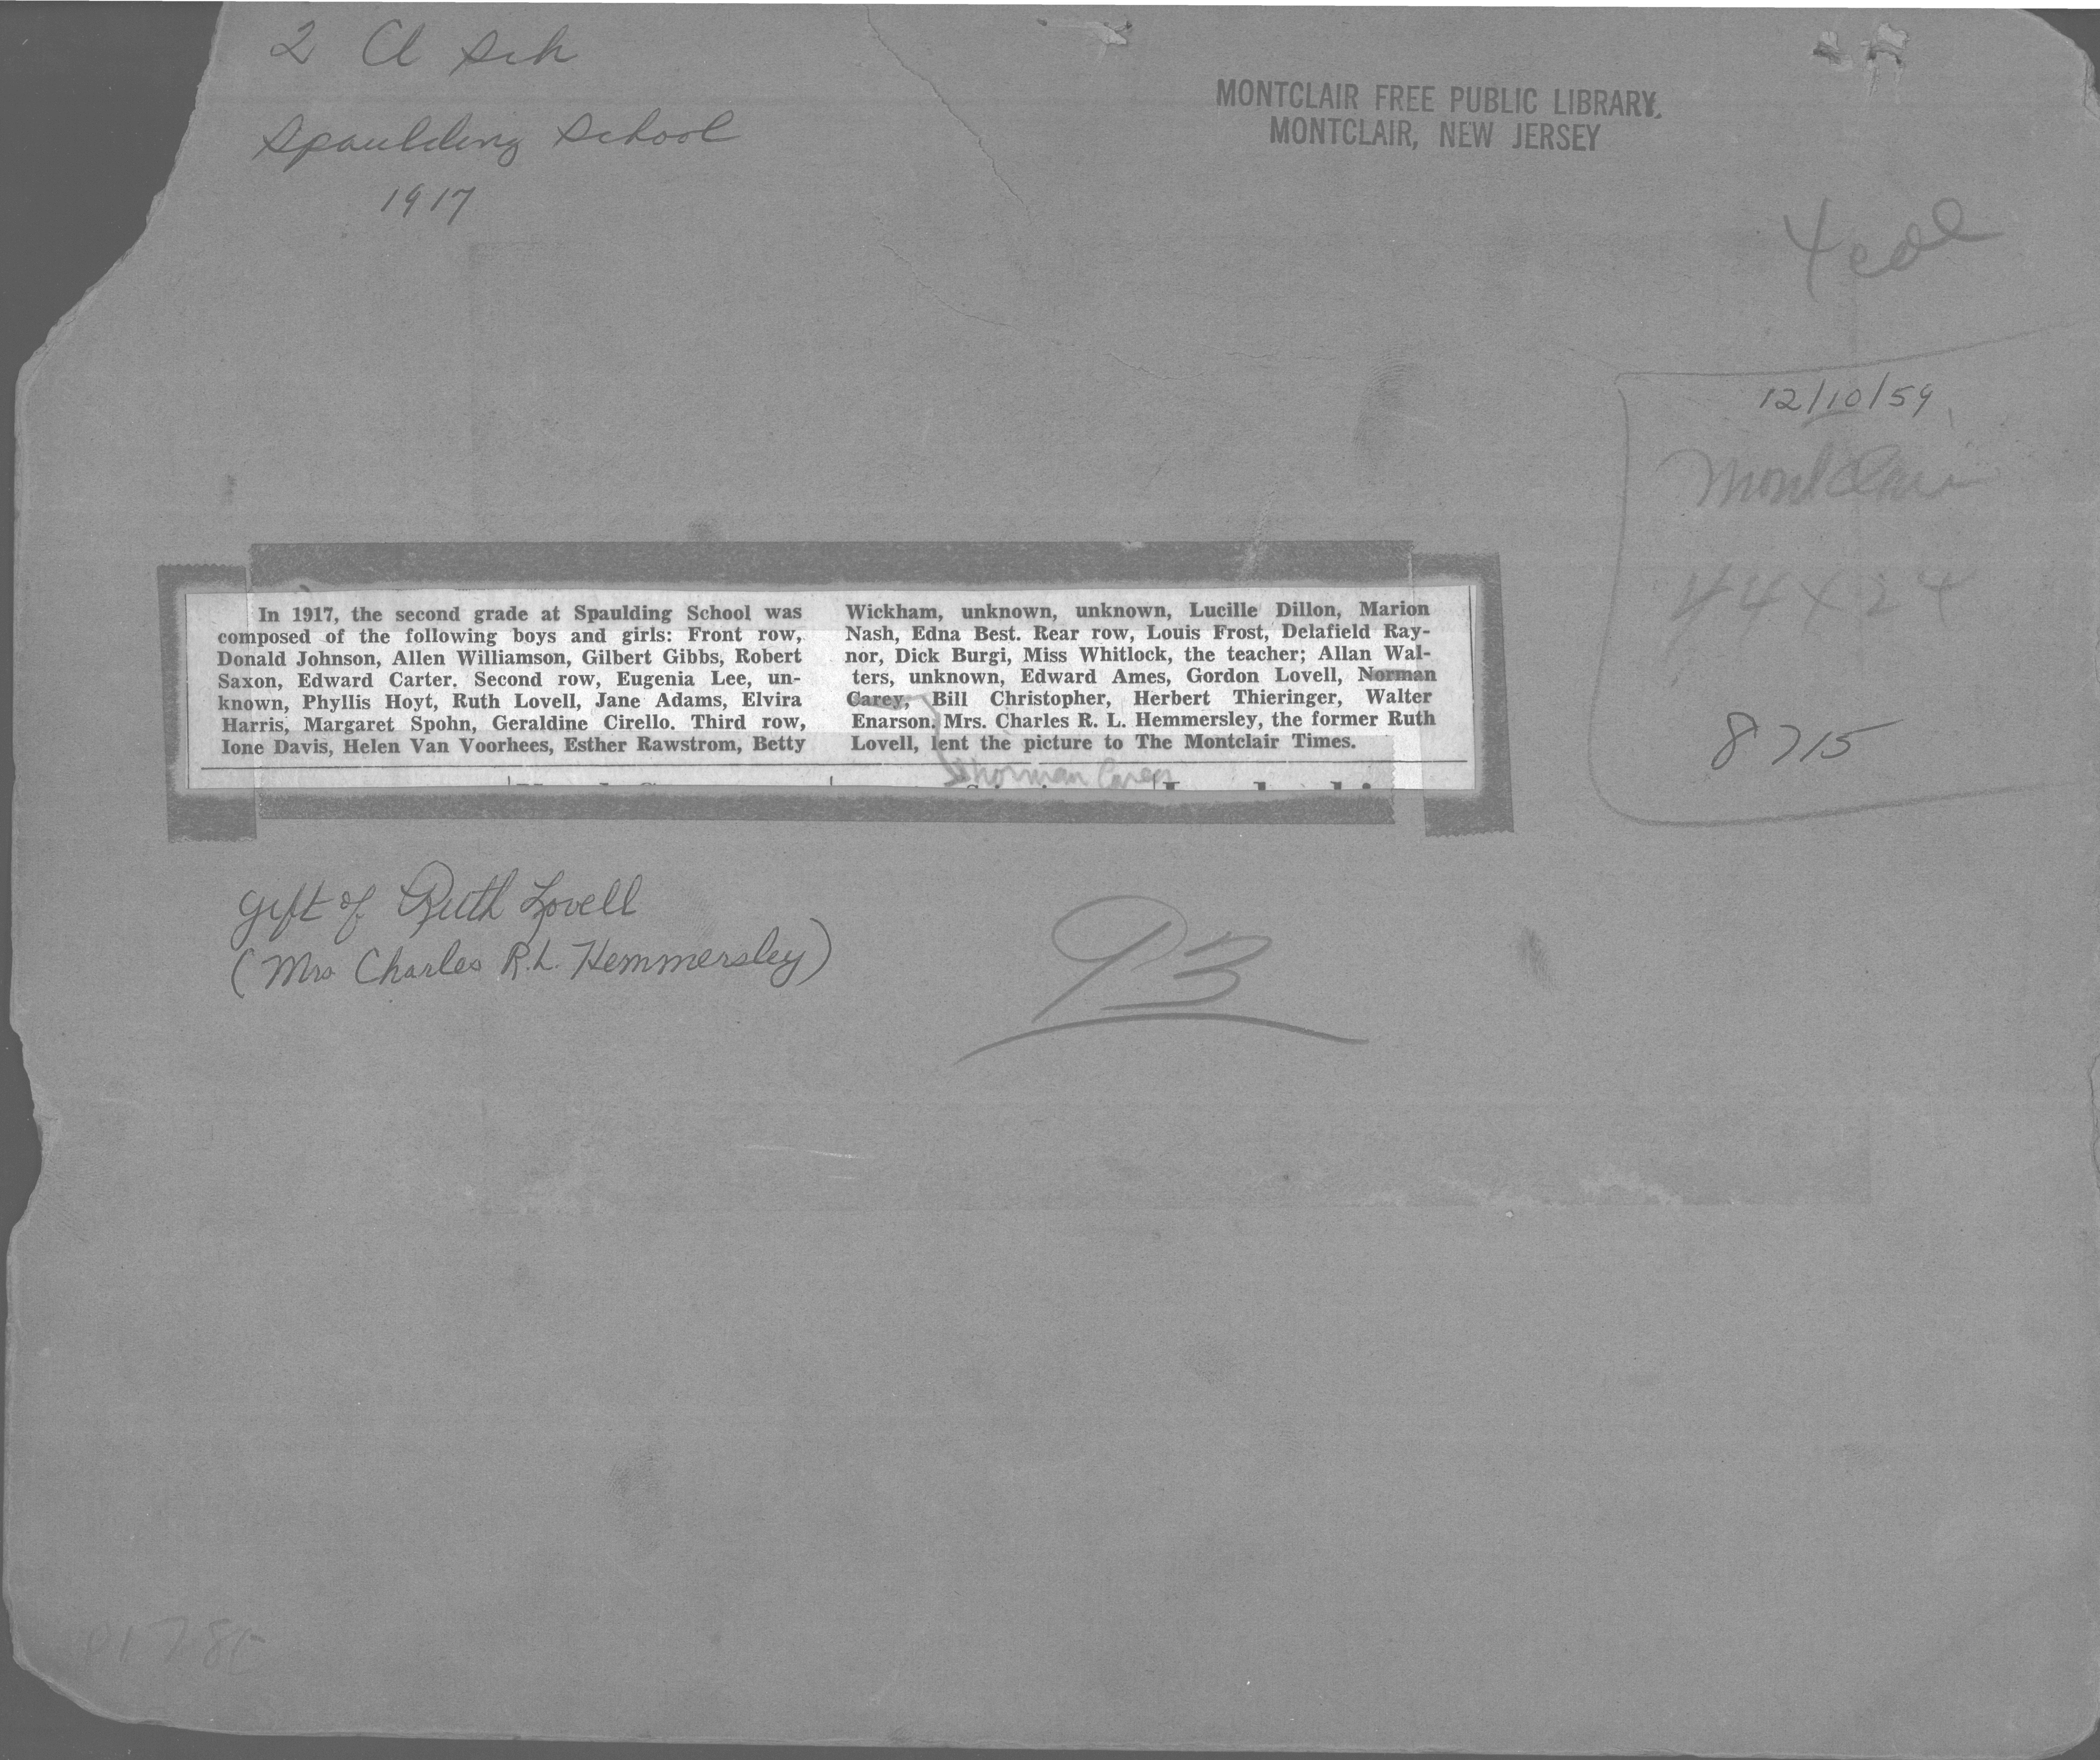 2 Cl Sch
Spaulding School
1917
MONTCLAIR FREE PUBLIC LIBRARY.
MONTCLAIR, NEW JERSEY
4 col
12/10/59
Montclair
8715
In 1917, the second grade at Spaulding School was
composed of the following boys and girls: Front row,
Donald Johnson, Allen Williamson, Gilbert Gibbs, Robert
Saxon, Edward Carter. Second row, Eugenia Lee, un-
known, Phyllis Hoyt, Ruth Lovell, Jane Adams, Elvira
Harris, Margaret Spohn, Geraldine Cirello. Third row,
Ione Davis, Helen Van Voorhees, Esther Rawstrom, Betty
Wickham, unknown, unknown, Lucille Dillon, Marion
Nash, Edna Best. Rear row, Louis Frost, Delafield Ray-
nor, Dick Burgi, Miss Whitlock, the teacher; Allan Wal-
ters, unknown, Edward Ames, Gordon Lovell, Norman
Carey, Bill Christopher, Herbert Thieringer, Walter
Enarson. Mrs. Charles R. L. Hemmersley, the former Ruth
Lovell, lent the picture to The Montclair Times.
Norman Carey
gift of Ruth Lovell
(Mrs Charles R.L. Hemmersley)
93